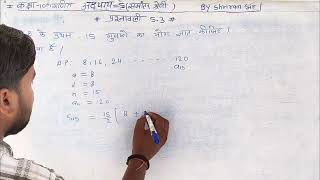 * कक्षा-10 गणित अध्याय-5 (समांतर श्रेणी) By Shivam Sir
* प्रश्नावली 5.3 *
के प्रथम 15 गुणजों का योग ज्ञात कीजिए।
AP: 8, 16, 24 ------- 120
a = 8
d = 8
n = 15
aₙ = 120
S₁₅ = 15/2 [ 8 +